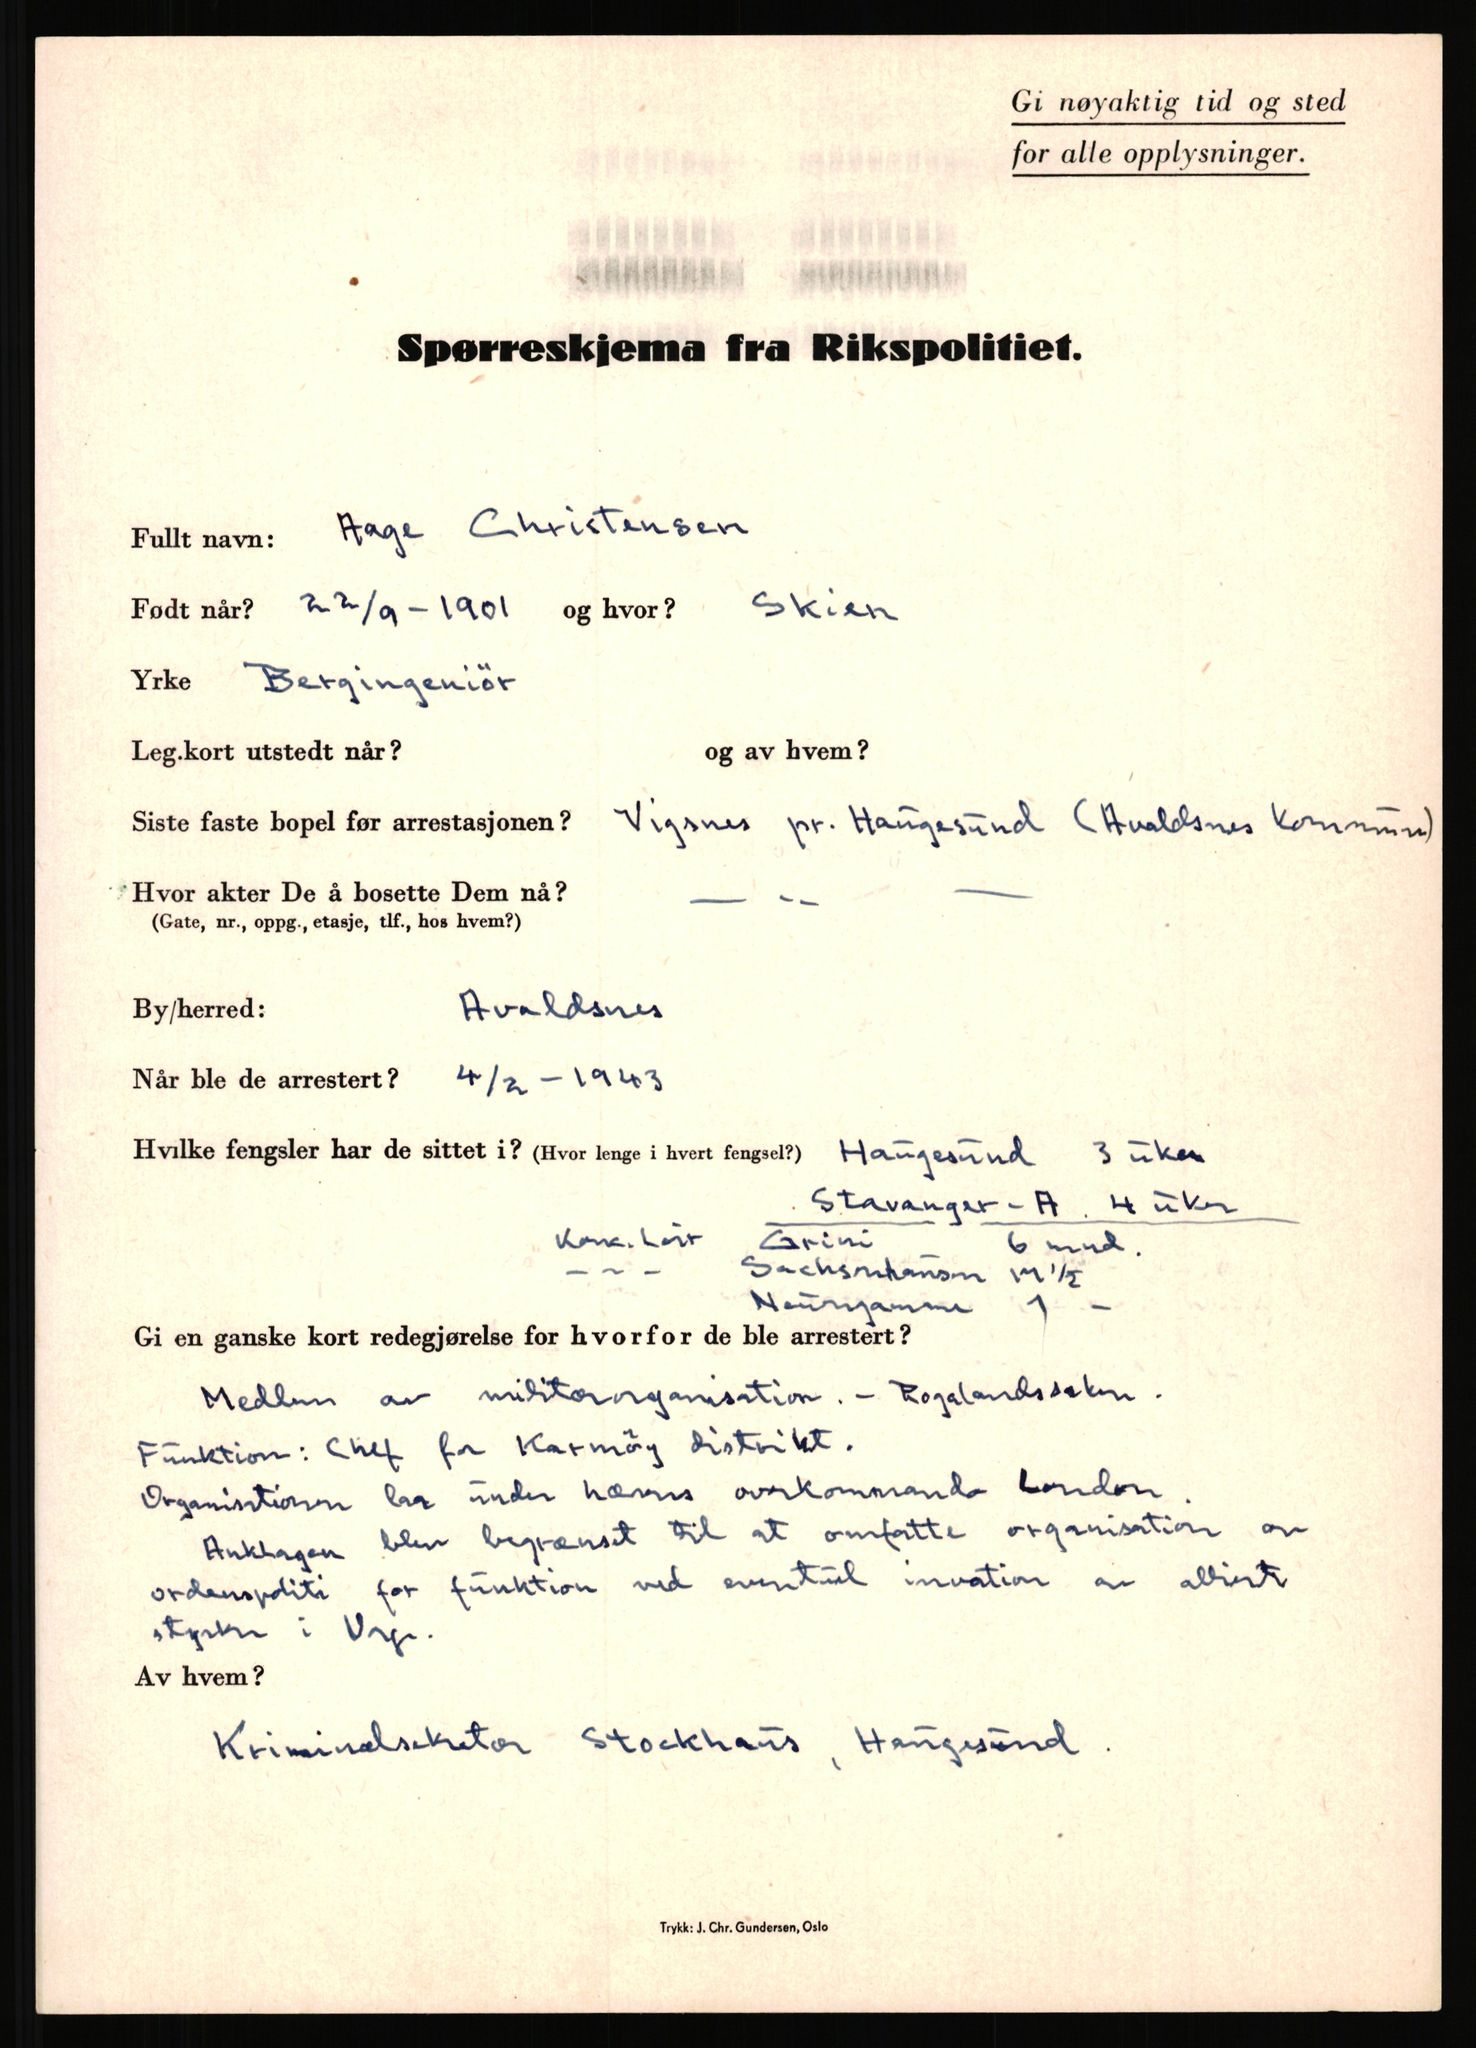 Gi nøyaktig tid og sted
for alle opplysninger.
Spørreskjema fra Rikspolitiet.
Fullt navn: Aage Christensen
Født når? 22/9 - 1901 og hvor? Skien
Yrke Bergingeniör
Leg.kort utstedt når? og av hvem?
Siste faste bopel før arrestasjonen? Vigsnes pr. Haugesund (Avaldsnes Kommun)
Hvor akter De å bosette Dem nå? — „ —
(Gate, nr., oppg., etasje, tlf., hos hvem?)
By/herred: Avaldsnes
Når ble de arrestert? 4/2 - 1943
Hvilke fengsler har de sittet i? (Hvor lenge i hvert fengsel?) Haugesund 3 uker
Stavanger - A. 4 uker
Konk. Leir Grini 6 mnd.
- „ - Sachsenhausen 14 1/2
Neuengamme 1 -
Gi en ganske kort redegjørelse for hvorfor de ble arrestert?
Medlem av militærorganisation. - Rogalandssaken.
Funktion: Chef for Karmöy distrikt.
Organisationen laa under hærens overkommando London.
Anklagen blev begrænset til at omfatte organisation av
ordenspoliti for funktion ved eventuel invation av allierte
styrker i Norge.
Av hvem?
Kriminalsekretær Stockhaus, Haugesund.
Trykk: J. Chr. Gundersen, Oslo